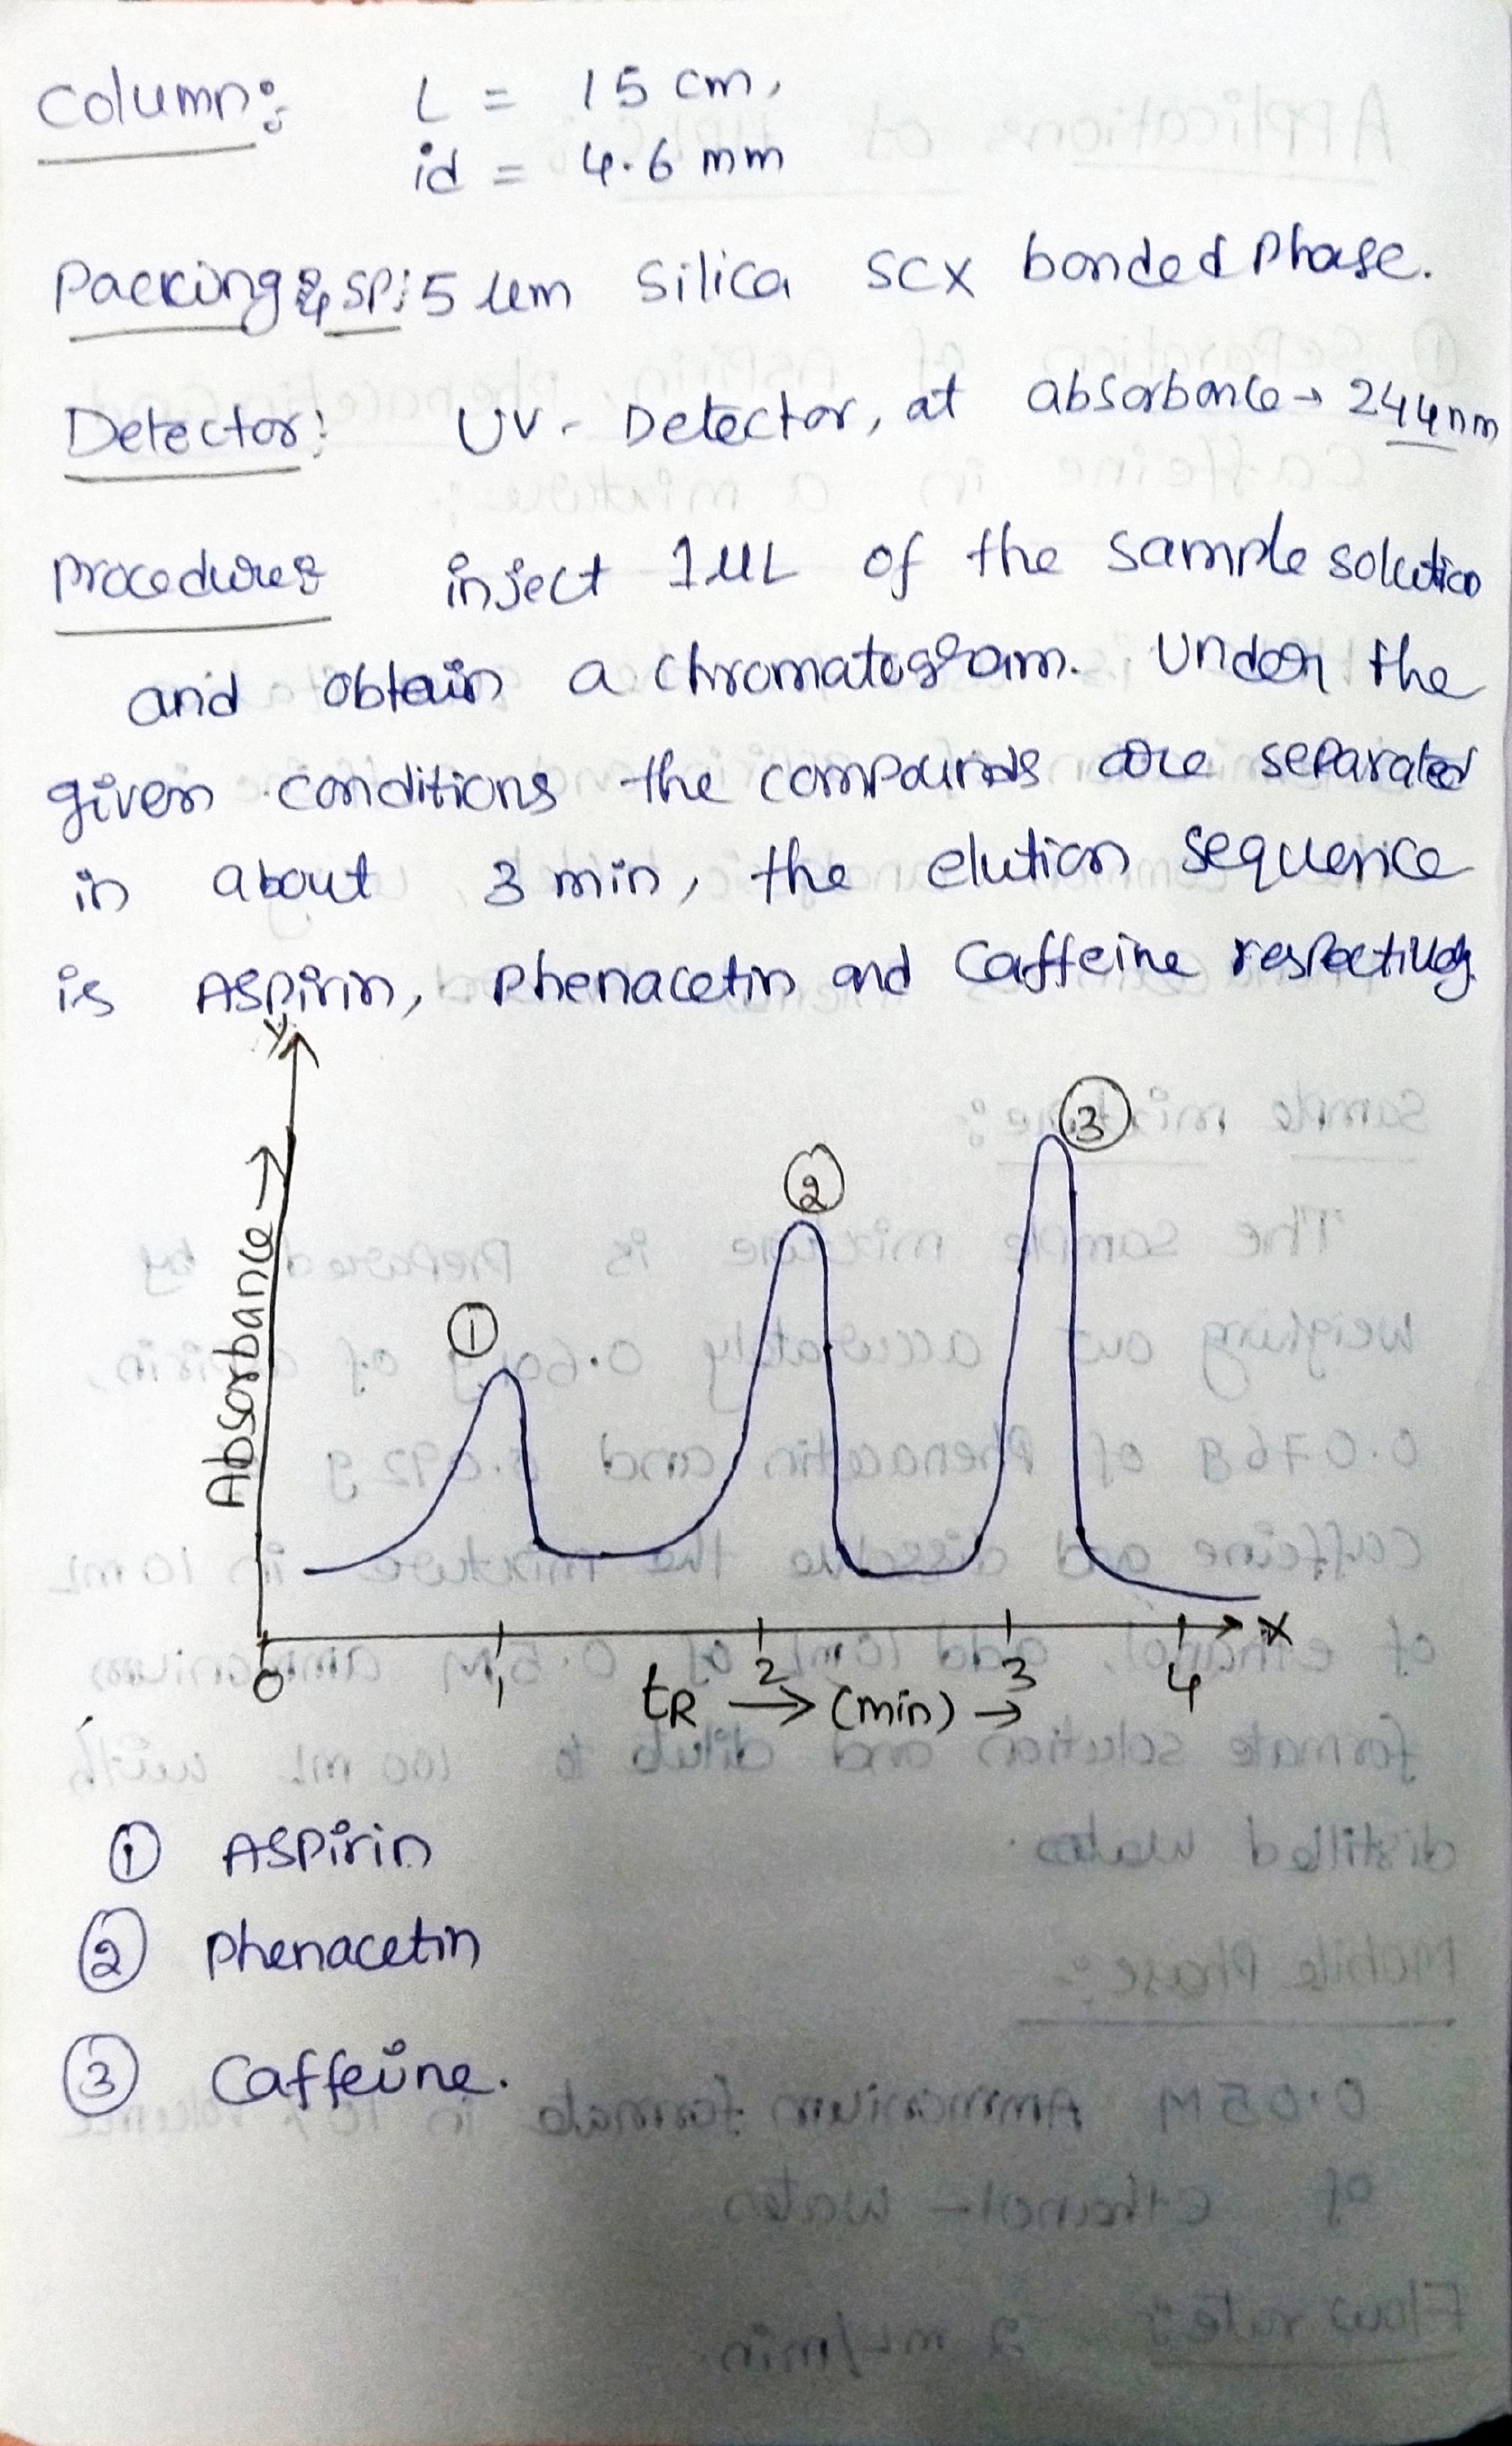 Column:
L = 15 cm,
id = 4.6 mm
Packing & SP: 5 µm Silica SCX bonded Phase.
Detector: UV - Detector, at absorbance → 244nm
Procedure: inject 1µL of the sample solution
and obtain a chromatogram. Under the
given conditions the compounds are separated
in about 3 min, the elution sequence
is Aspirin, Phenacetin and Caffeine respectively.
Y
Absorbance →
① ② ③
0 1 2 3 4 X
tR → (min) →
① Aspirin
② Phenacetin
③ Caffeine.